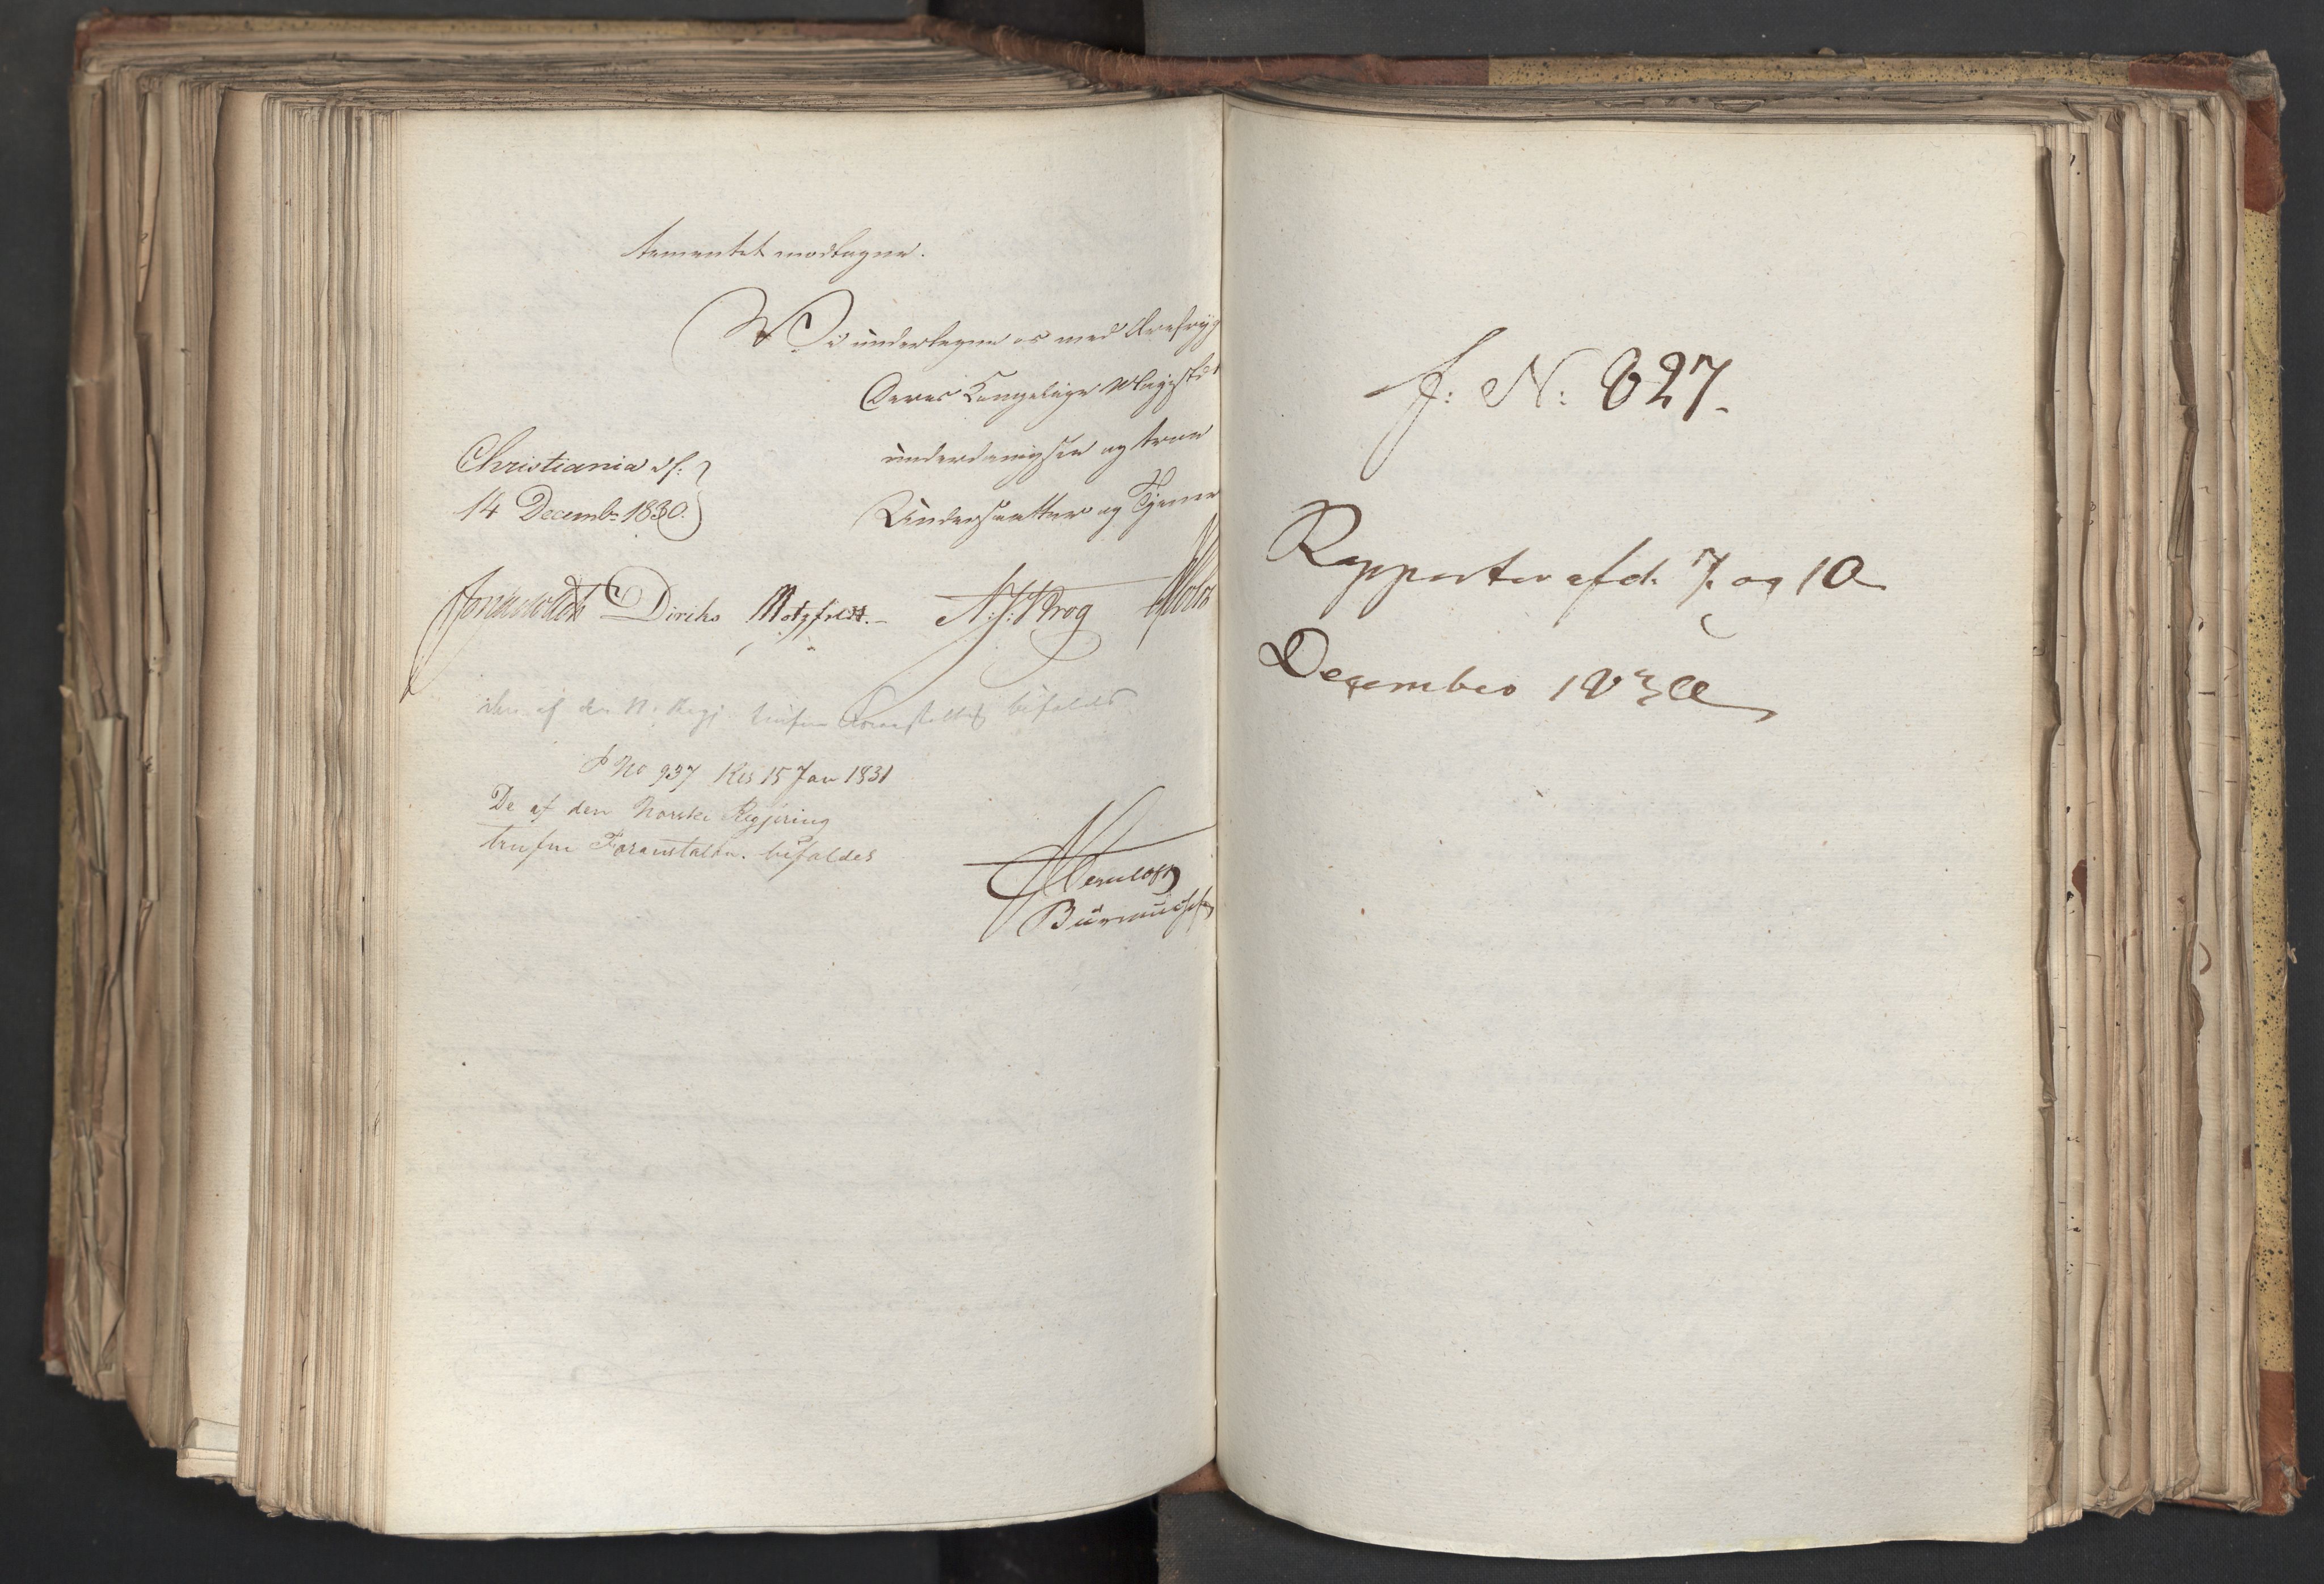 tementet modtagne.
Vi undertegne os med Ærefrygt
Deres Kongelige Majestæts
underdanigste og troe
Undersaatter og Tjenere
Christiania d:
14 Decemb: 1830.
Jonas Collett Diriks Motzfeldt. N. J. Krog Holst
af den N. Regj. trufne Foranstaltn befalder
P No 937 Res 15 Jan 1831
De af den Norske Regjering
trufne Foranstaltn. bifaldes
f: N: 827.
Rapporter af d. 7. og 10
December 1830